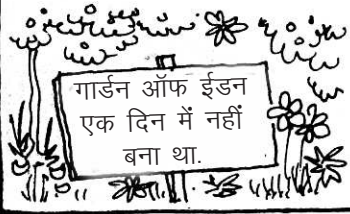 गार्डन ऑफ ईडन
एक दिन में नहीं
बना था.